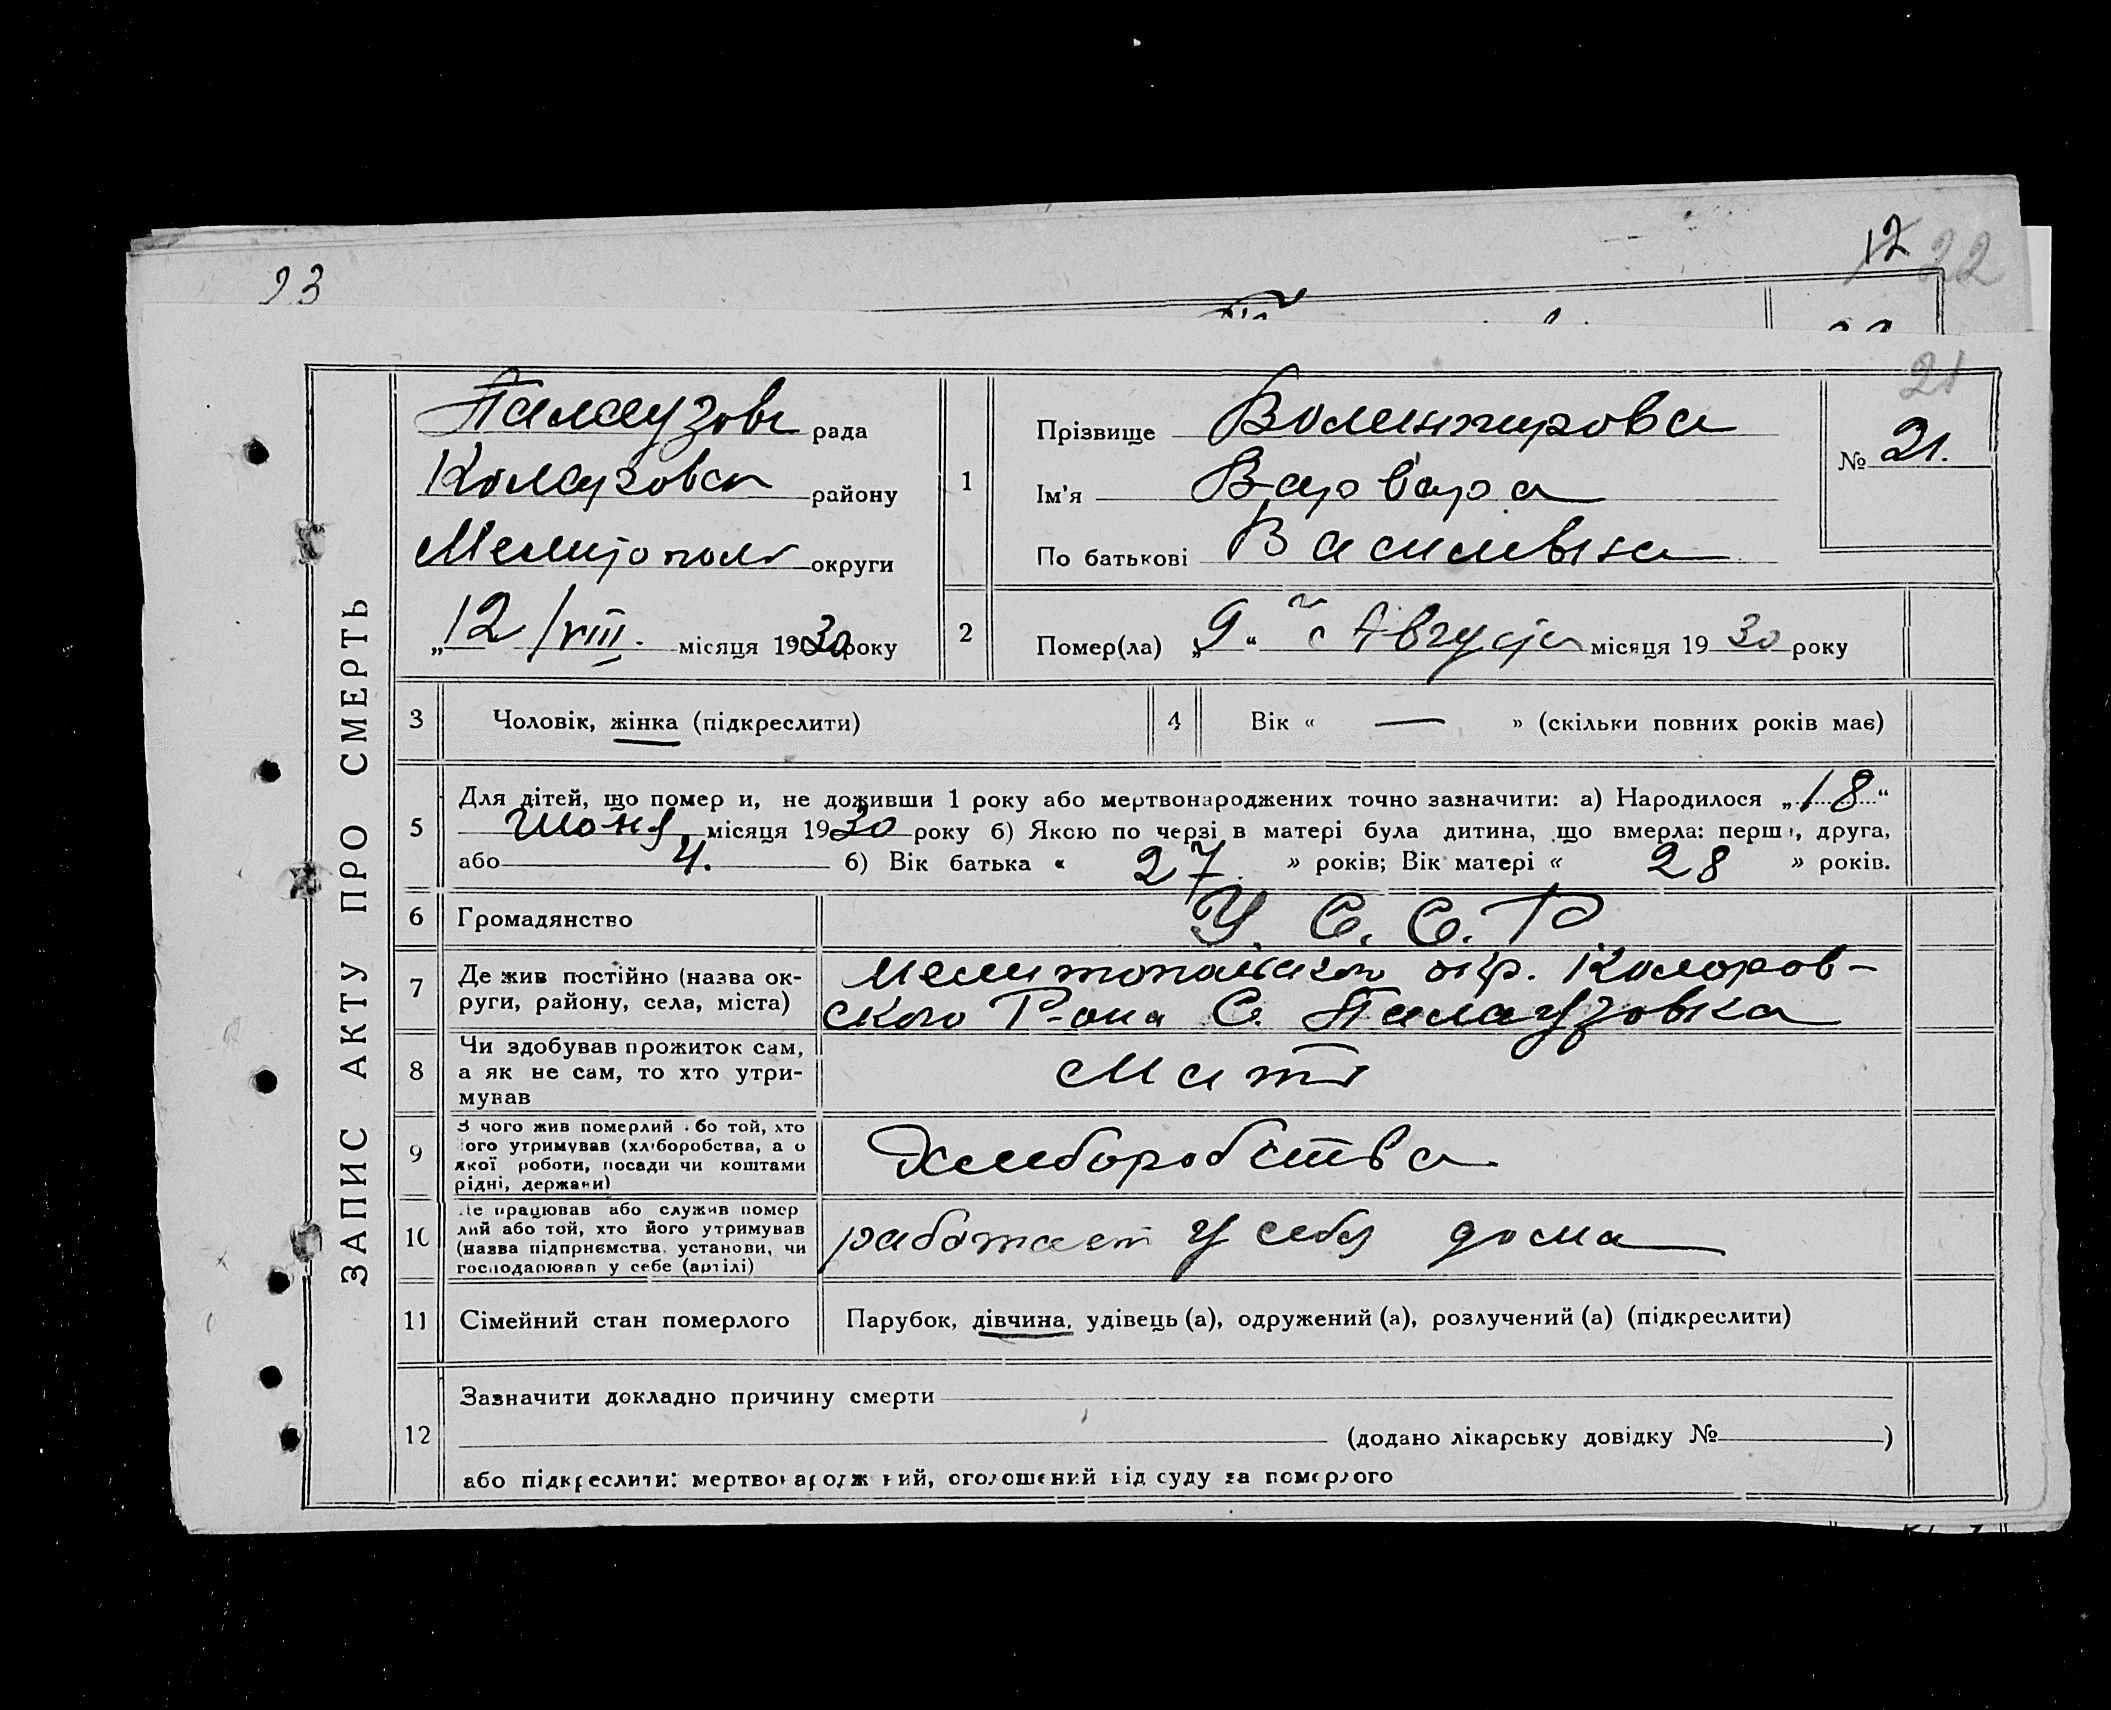 23
12 22
21
ЗАПИС АКТУ ПРО СМЕРТЬ
Палаузовс рада
району
Мелитопол округи
„12/VIII. місяця 1930 року
1
Прізвище Волентирова
Ім'я Варвара
По батькові Васильевна
№ 21.
2
Помер(ла) „9“ Августа місяця 1930 року
3 Чоловік, жінка (підкреслити)
4 Вік « — » (скільки повних років має)
5
Для дітей, що помер и, не доживши 1 року або мертвонароджених точно зазначити: а) Народилося „18“
Июня місяця 1930 року б) Якою по черзі в матері була дитина, що вмерла: перша, друга,
або 4. б) Вік батька « 27 » років; Вік матері « 28 » років.
6 Громадянство У. С. С. Р.
7
Де жив постійно (назва ок-
руги, району, села, міста)
Мелитопольского окр. Коларов-
ского Р-она С. Палаузовка
8
Чи здобував прожиток сам,
а як не сам, то хто утри-
мував
Мать
9
З чого жив померлий або той, хто
його утримував (хліборобства, а о
якої роботи, посади чи коштами
рідні, держави)
Хлеборобства
10
Де працював або служив помер
лий або той, хто його утримував
(назва підприємства, установи, чи
господарював у себе (артілі)
работает у себя дома
11 Сімейний стан померлого Парубок, дівчина, удівець (а), одружений (а), розлучений (а) (підкреслити)
12
Зазначити докладно причину смерти
(додано лікарську довідку № )
або підкреслити: мертвонароджений, оголошений від суду за померлого